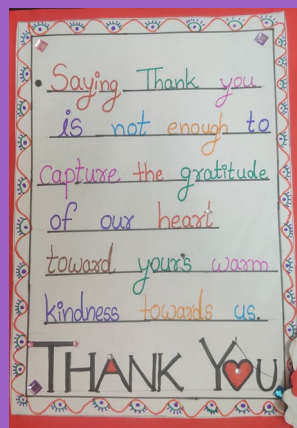 Saying Thank you
is not enough to
capture the gratitude
of our heart
toward your's warm
kindness towards us.
THANK YOU